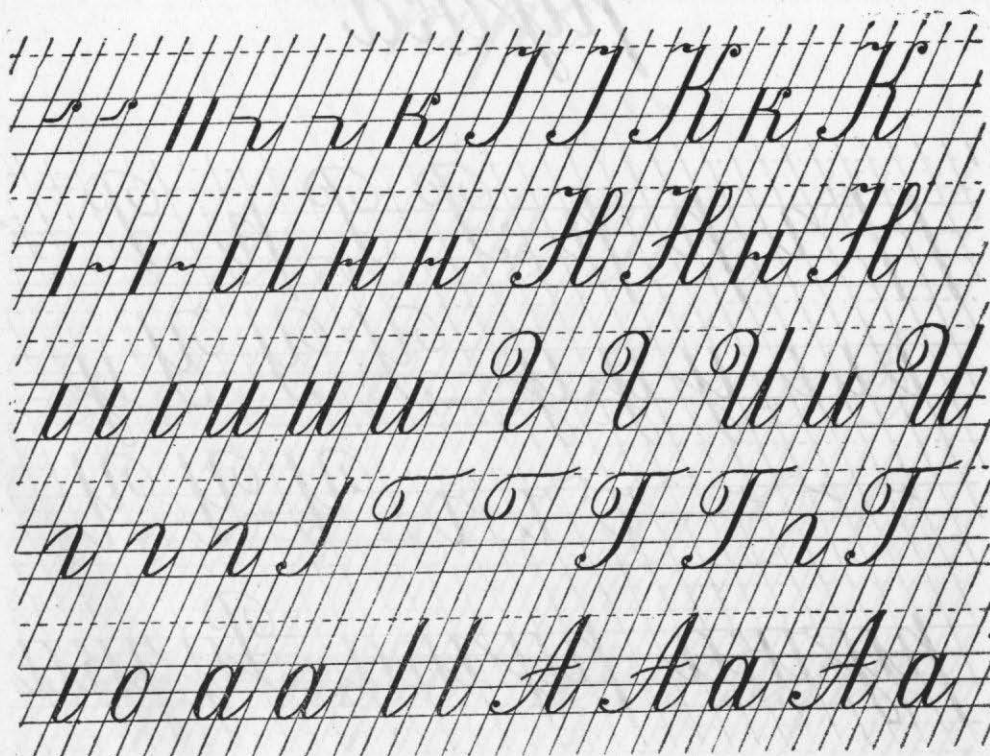 к К к К
н н Н Н н Н
и и и И и И
г г г Г Г г Г
о а а А А а А а